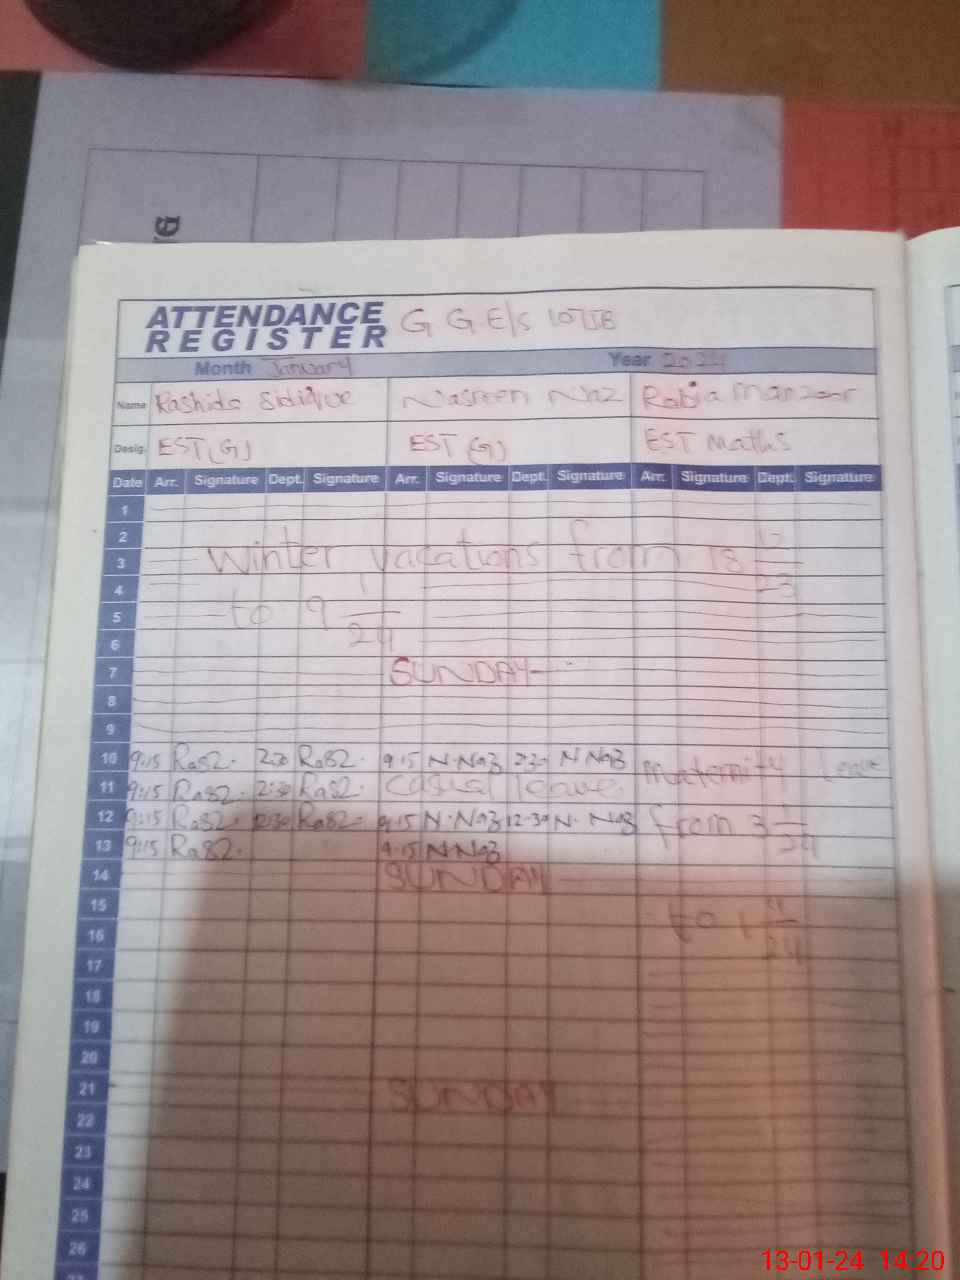 ATTENDANCE
REGISTER
G G.E/S 107JB
Month January Year 2024
Name Rashida Sidique Nasreen Naz Rabia Manzoor
Desig. EST(G) EST (G) EST Maths
Date Arr. Signature Dept. Signature Arr. Signature Dept. Signature Arr. Signature Dept. Signature
1
2
3 Winter vacations from 18 12/23
4
5 to 9 1/24
6
7 SUNDAY
8
9
10 9:15 2:30 9:15 N.Naz 2:30 N Naz Maternity Leave
11 9:15 2:30 Casual leave.
12 9:15 12:30 9:15 N.Naz 12:30 N. Naz from 3 1/24
13 9:15 9:15 N Naz
14 SUNDAY
15
16 to 1
17
18
19
20
21 SUNDAY
22
23
24
25
26
27
13-01-24 14:20